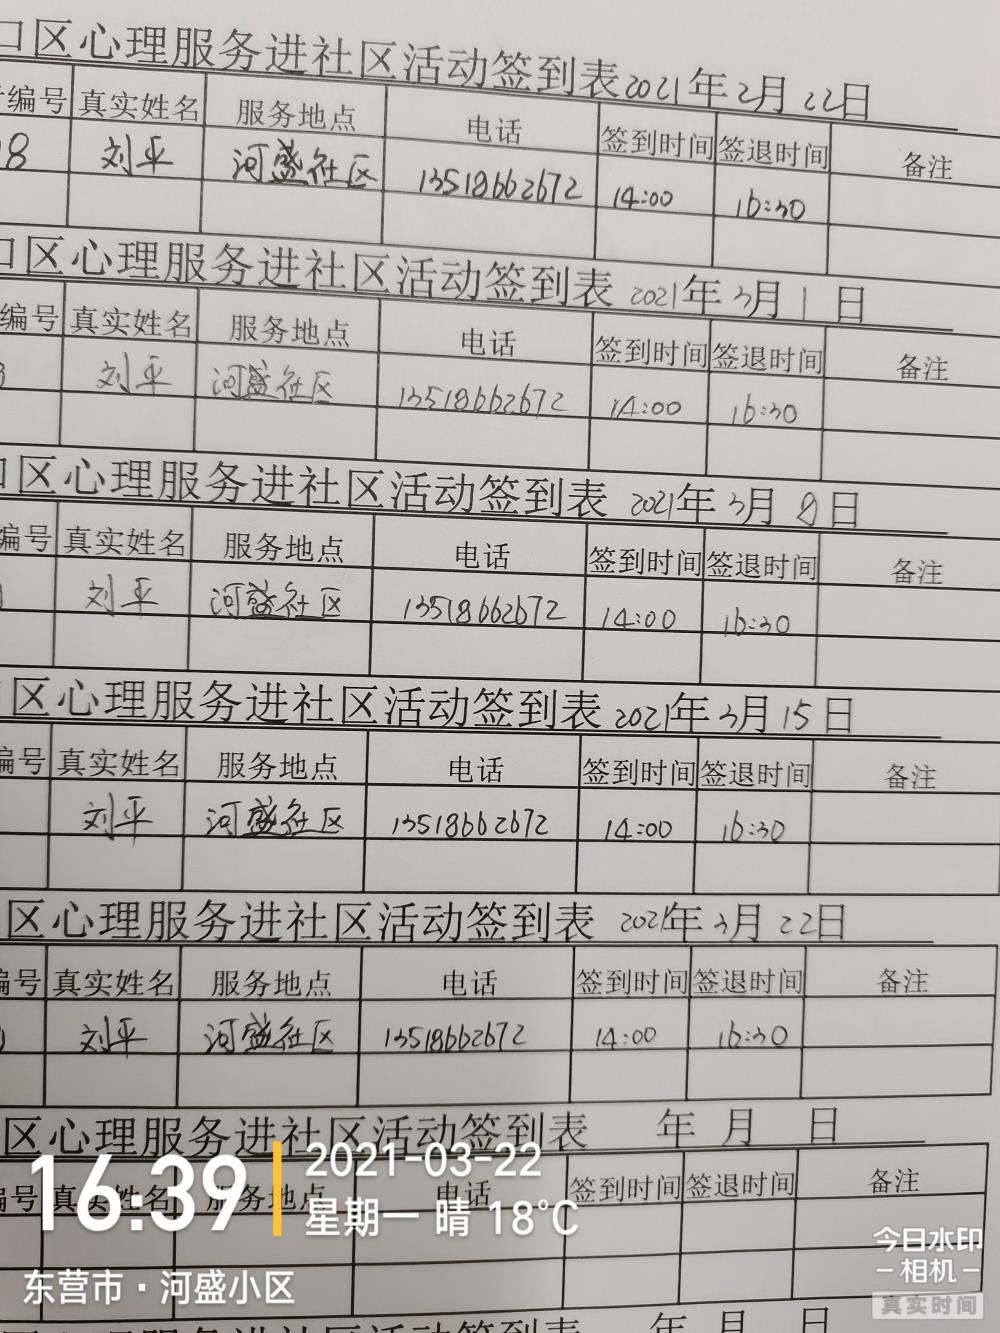 口区心理服务进社区活动签到表2021年2月22日
编号 真实姓名 服务地点 电话 签到时间 签退时间 备注
18 刘平 河盛社区 13518662672 14:00 16:30
口区心理服务进社区活动签到表 2021年3月1日
编号 真实姓名 服务地点 电话 签到时间 签退时间 备注
刘平 河盛社区 13518662672 14:00 16:30
口区心理服务进社区活动签到表 2021年3月8日
编号 真实姓名 服务地点 电话 签到时间 签退时间 备注
刘平 河盛社区 13518662672 14:00 16:30
区心理服务进社区活动签到表 2021年3月15日
编号 真实姓名 服务地点 电话 签到时间 签退时间 备注
刘平 河盛社区 13518662672 14:00 16:30
区心理服务进社区活动签到表 2021年3月22日
编号 真实姓名 服务地点 电话 签到时间 签退时间 备注
刘平 河盛社区 13518662672 14:00 16:30
区心理服务进社区活动签到表 年 月 日
编号 真实姓名 服务地点 电话 签到时间 签退时间 备注
16:39
2021-03-22
星期一 晴 18°C
东营市·河盛小区
今日水印
-相机-
真实时间
区心理服务进社区活动签到表 年 月 日